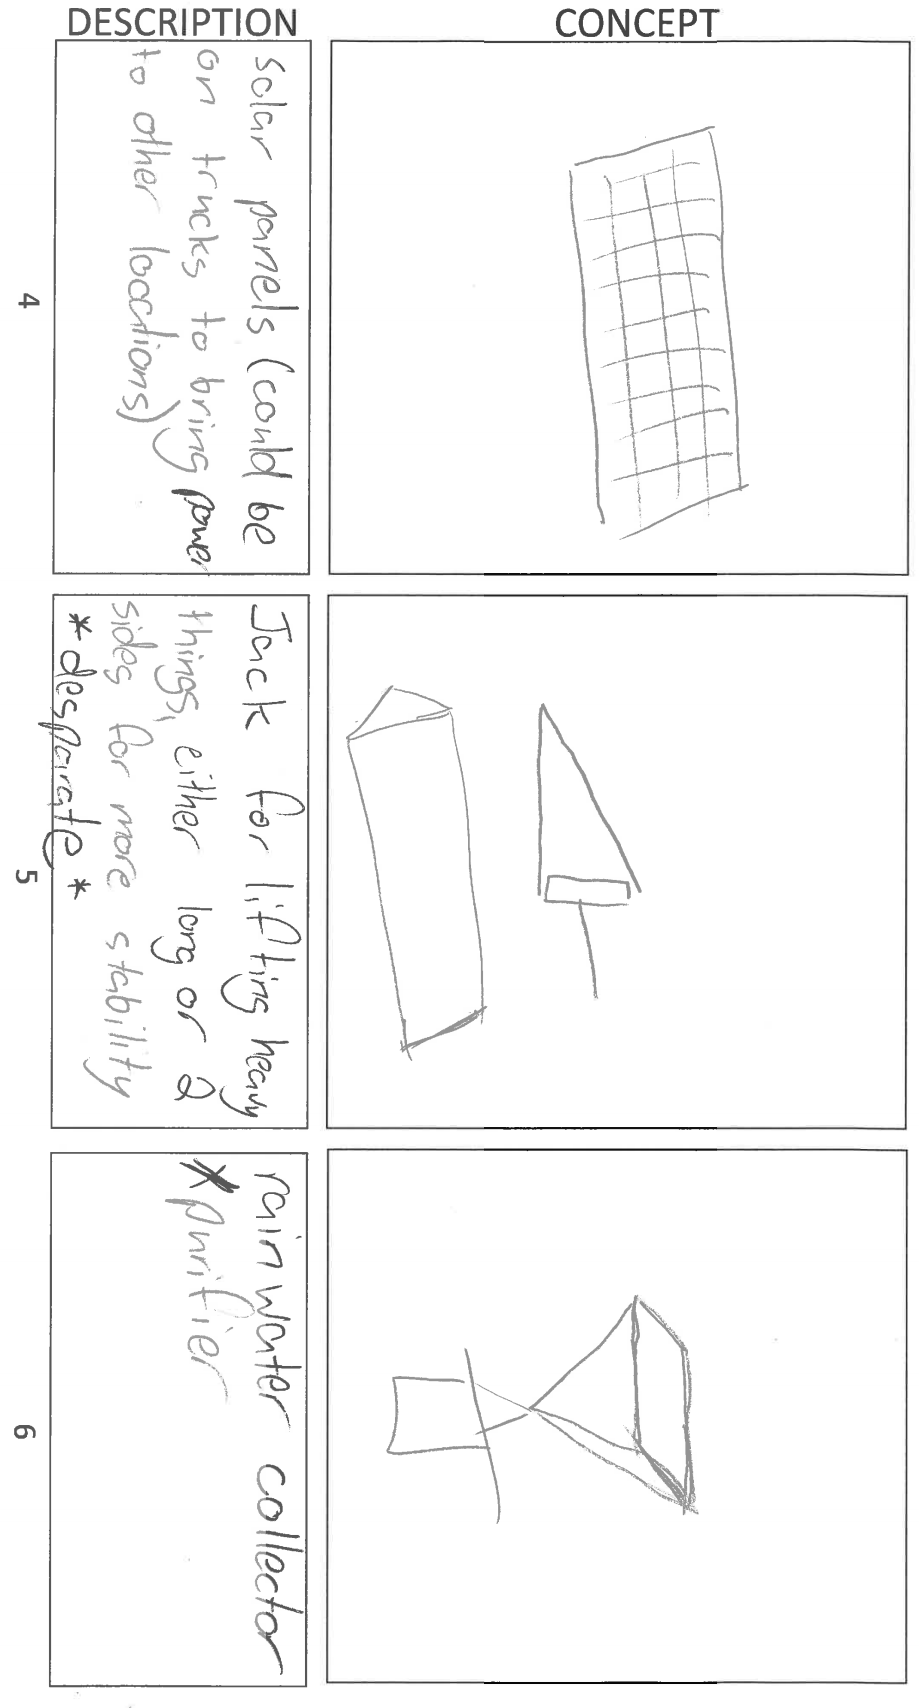 DESCRIPTION
CONCEPT
Solar panels (could be
on trucks to bring power
to other locations)
4
Jack for lifting heavy
things, either long or 2
sides for more stability
*desparate*
5
rain water collector
*purifier
6